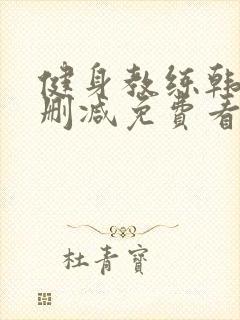 健身教练韩
删减免费看
杜青宝